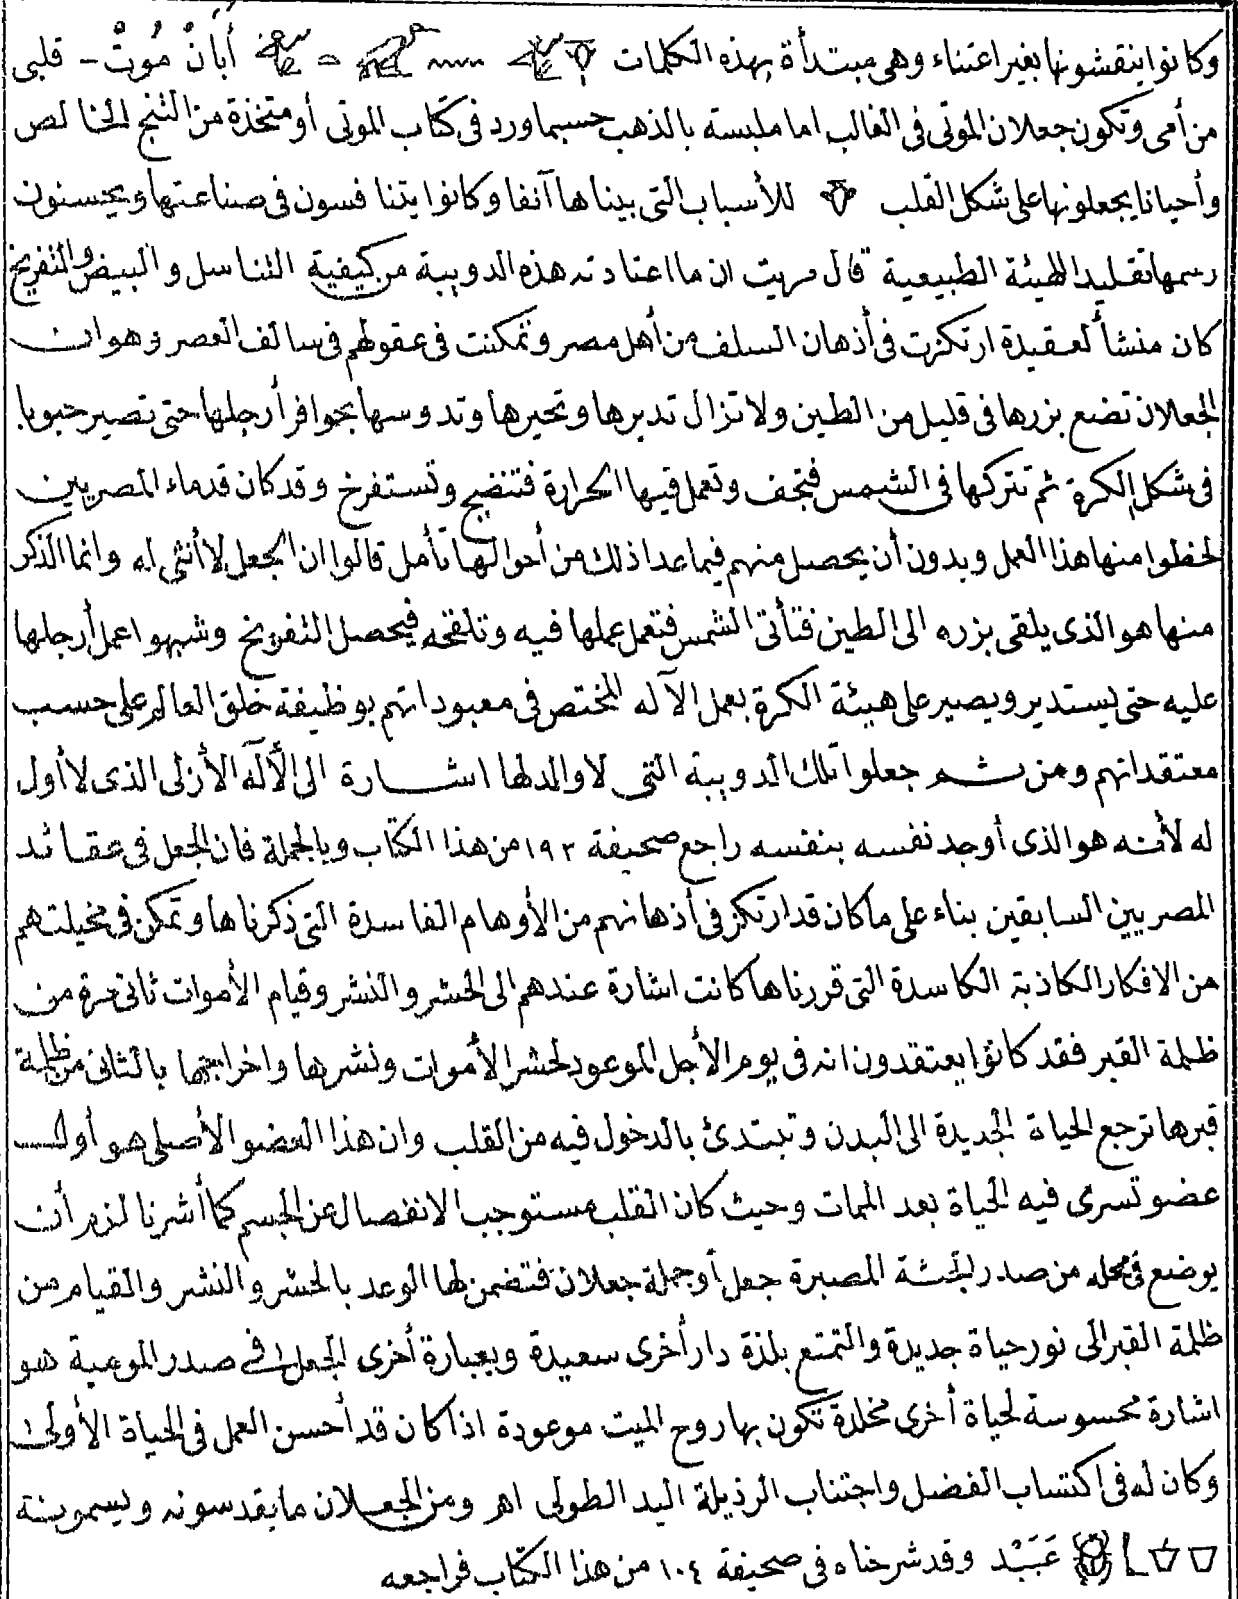 وكانوا ينقشونها بغير اعتناء وهى مبتدأة بهذه الكلمات أَبَانْ مُوتْ - قلبى
من أمى وتكون جعلان الموتى فى الغالب اما ملبسه بالذهب حسبما ورد فى كتاب الموتى أو متخذة من الثنج الخالص
وأحيانا يجعلونها على شكل القلب للأسباب التى بيناها آنفا وكانوا يتنافسون فى صناعتها ويحسنون
رسمها تقليد الهيئة الطبيعية قال مريت ان ما اعتادته هذه الدويبة من كيفية التناسل والبيض والتفريخ
كان منشأ لعقيدة ارتكزت فى أذهان السلف من أهل مصر وتمكنت فى عقولهم فى سالف العصر وهو ان
الجعلان تضع بزرها فى قليل من الطين ولا تزال تديرها وتحيرها وتدوسها بحوافر أرجلها حتى تصير حبوبا
فى شكل الكرة ثم تتركها فى الشمس فتجف وتعمل فيها الحرارة فتنضج وتستفرخ وقد كان قدماء المصريين
لحظوا منها هذا العمل وبدون أن يحصل منهم فيما عدا ذلك من أحوالها تأمل قالوا ان الجعل لا أنثى له وانما الذكر
منها هو الذى يلقى بزره الى الطين فتأتى الشمس فتعمل عملها فيه وتلقحه فيحصل التفريخ وشبهوا عمل أرجلها
عليه حتى يستدير ويصير على هيئة الكرة بعمل الآله المختص فى معبوداتهم بوظيفة خلق العالم على حسب
معتقداتهم ومن ثم جعلوا تلك الدويبة التى لا والد لها اشارة الى الأله الأزلى الذى لا أول
له لأنه هو الذى أوجد نفسه بنفسه راجع صحيفة ١٩٣ من هذا الكتاب وبالجملة فان الجعل فى عقائد
المصريين السابقين بناء على ما كان قد ارتكز فى أذهانهم من الأوهام الفاسدة التى ذكرناها وتمكن فى مخيلتهم
من الافكار الكاذبة الكاسدة التى قررناها كانت اشارة عندهم الى الحشر والنشر وقيام الأموات ثانى مرة من
ظلمة القبر فقد كانوا يعتقدون انه فى يوم الأجل الموعود لحشر الأموات ونشرها واخراجها بالثانى من ظلمة
قبرها ترجع الحياة الجديدة الى البدن وتبتدئ بالدخول فيه من القلب وان هذا العضو الأصلى هو أول
عضو تسرى فيه الحياة بعد الممات وحيث كان القلب مستوجب الانفصال عن الجسم كما أشرنا لزم أن
يوضع فى محله من صدر الجثة المصبرة جعل أو جملة جعلان فتضمن لها الوعد بالحشر والنشر والقيام من
ظلمة القبر الى نور حياة جديدة والتمتع بلذة دار أخرى سعيدة وبعبارة أخرى الجعل فى صدر الموعية هو
اشارة محسوسة لحياة أخرى مخلدة تكون بها روح الميت موعودة اذا كان قد أحسن العمل فى الحياة الأولى
وكان له فى اكتساب الفضل واجتناب الرذيلة اليد الطولى اهـ ومن الجعلان ما يقدسونه ويسمونه
عَبَبْد وقد شرحناه فى صحيفة ١٠٤ من هذا الكتاب فراجعه